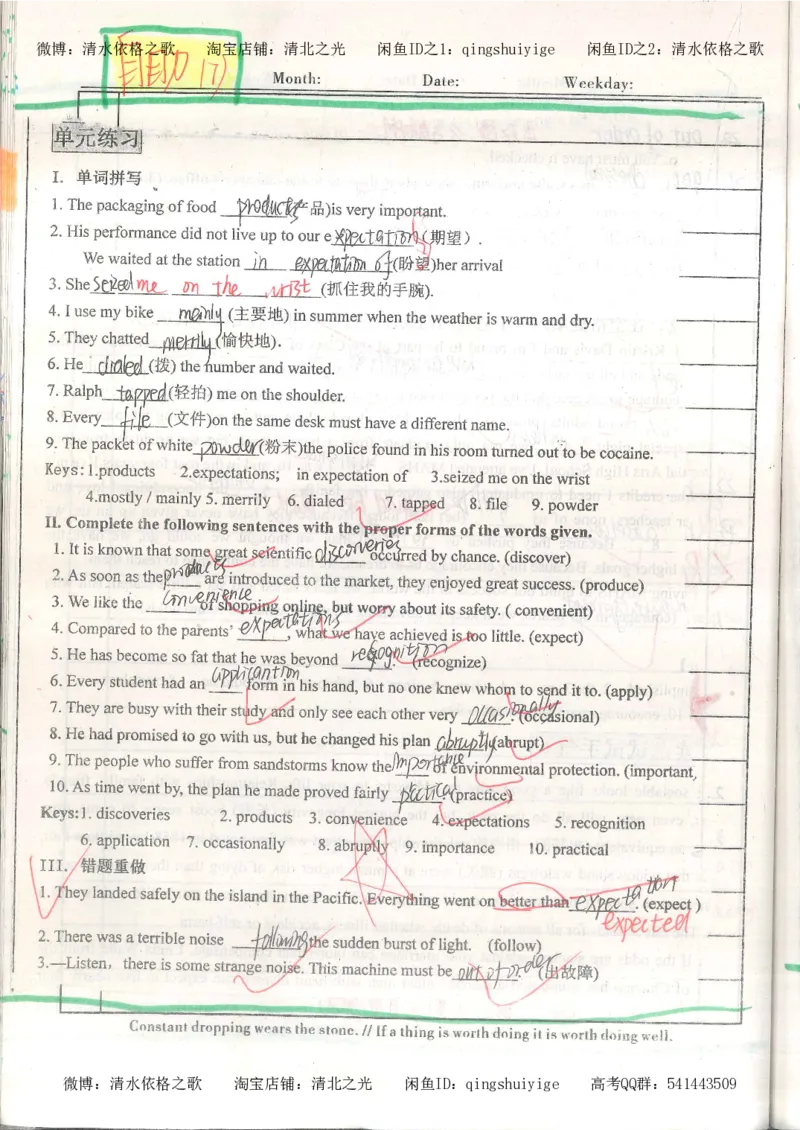 微博：清水依格之歌 淘宝店铺：清北之光 闲鱼ID之1：qingshuiyige 闲鱼ID之2：清水依格之歌
Month: Date: Weekday:
单元练习
I. 单词拼写
1. The packaging of food products产品)is very important.
2. His performance did not live up to our expectation(期望).
We waited at the station in expectation of(盼望)her arrival
3. She seized me on the wrist (抓住我的手腕).
4. I use my bike mainly (主要地) in summer when the weather is warm and dry.
5. They chatted merrily(愉快地).
6. He dialed (拨) the number and waited.
7. Ralph tapped(轻拍) me on the shoulder.
8. Every file (文件)on the same desk must have a different name.
9. The packet of white powder(粉末)the police found in his room turned out to be cocaine.
Keys: 1.products 2.expectations; in expectation of 3.seized me on the wrist
4.mostly / mainly 5. merrily 6. dialed 7. tapped 8. file 9. powder
II. Complete the following sentences with the proper forms of the words given.
1. It is known that some great scientific discoveries occurred by chance. (discover)
2. As soon as the products are introduced to the market, they enjoyed great success. (produce)
3. We like the convenience of shopping online, but worry about its safety. ( convenient)
4. Compared to the parents' expectations, what we have achieved is too little. (expect)
5. He has become so fat that he was beyond recognition. (recognize)
6. Every student had an applicantion form in his hand, but no one knew whom to send it to. (apply)
7. They are busy with their study and only see each other very occasionally. (occasional)
8. He had promised to go with us, but he changed his plan abruptly(abrupt)
9. The people who suffer from sandstorms know the importance of environmental protection. (important,
10. As time went by, the plan he made proved fairly practical. (practice)
Keys: 1. discoveries 2. products 3. convenience 4. expectations 5. recognition
6. application 7. occasionally 8. abruptly 9. importance 10. practical
III. 错题重做
1. They landed safely on the island in the Pacific. Everything went on better than expectation. (expect )
expected
2. There was a terrible noise following the sudden burst of light. (follow)
3.—Listen, there is some strange noise. This machine must be out of order (出故障)
Constant dropping wears the stone. // If a thing is worth doing it is worth doing well.
微博：清水依格之歌 淘宝店铺：清北之光 闲鱼ID：qingshuiyige 高考QQ群：541443509